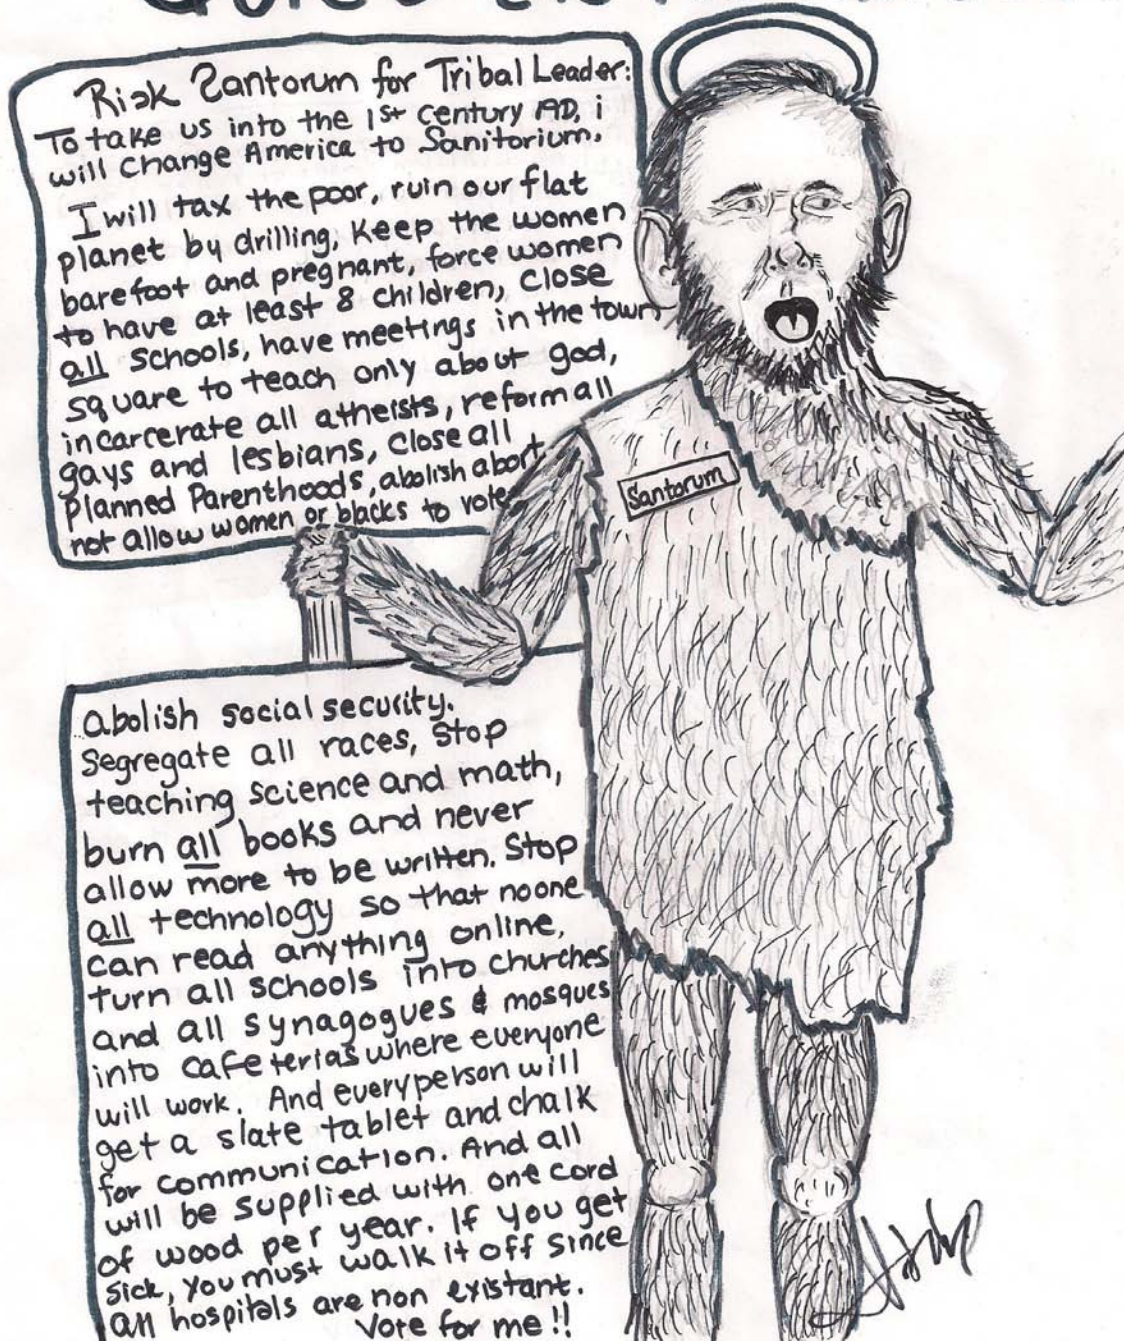 Risk Santorum for Tribal Leader:
To take us into the 1st century AD, i
will change America to Sanitorium.
I will tax the poor, ruin our flat
planet by drilling, Keep the women
barefoot and pregnant, force women
to have at least 8 children, close
all schools, have meetings in the town
square to teach only about god,
incarcerate all atheists, reform all
gays and lesbians, close all
Planned Parenthoods, abolish abort
not allow women or blacks to vote
Santorum
abolish social security.
Segregate all races, Stop
teaching science and math,
burn all books and never
allow more to be written. Stop
all technology so that noone
can read anything online,
turn all schools into churches
and all synagogues & mosques
into cafeterias where everyone
will work. And everyperson will
get a slate tablet and chalk
for communication. And all
will be supplied with one cord
of wood per year. If you get
sick, you must walk it off since
all hospitals are non existant.
Vote for me!!